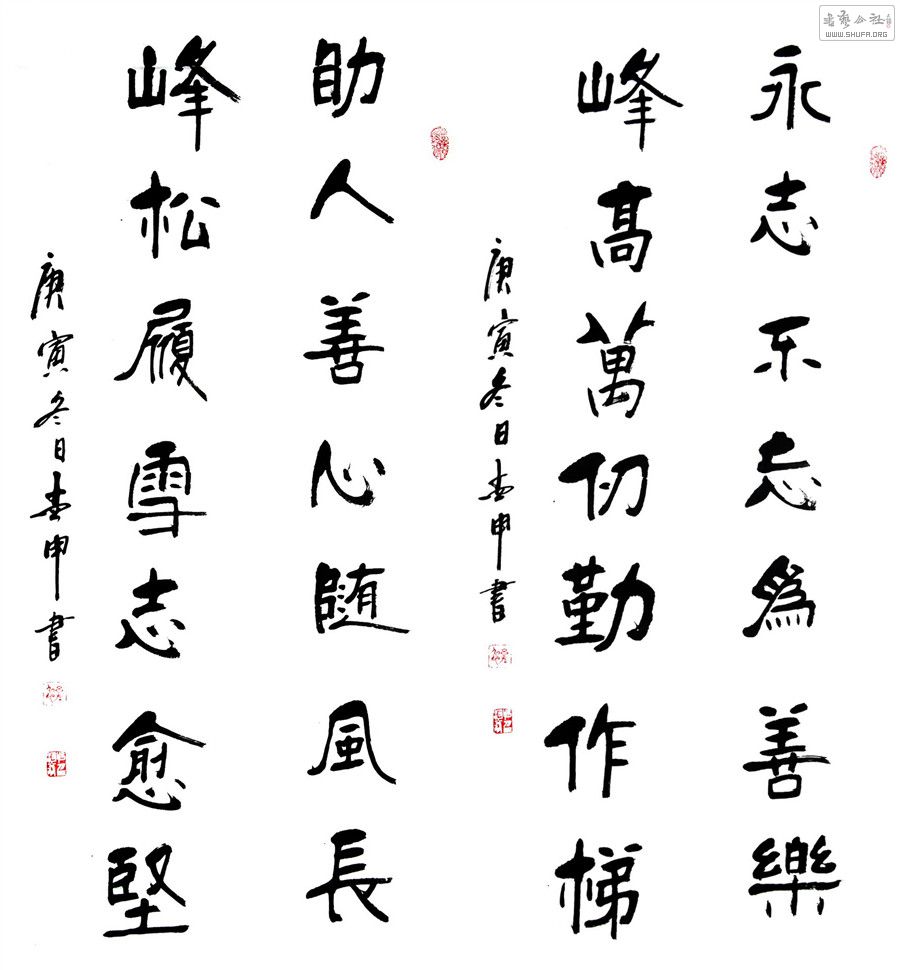 書藝公社
WWW.SHUFA.ORG
永志不忘為善樂
峰高萬仞勤作梯
庚寅冬日申書
助人善心随風長
峰松履雪志愈堅
庚寅冬日申書